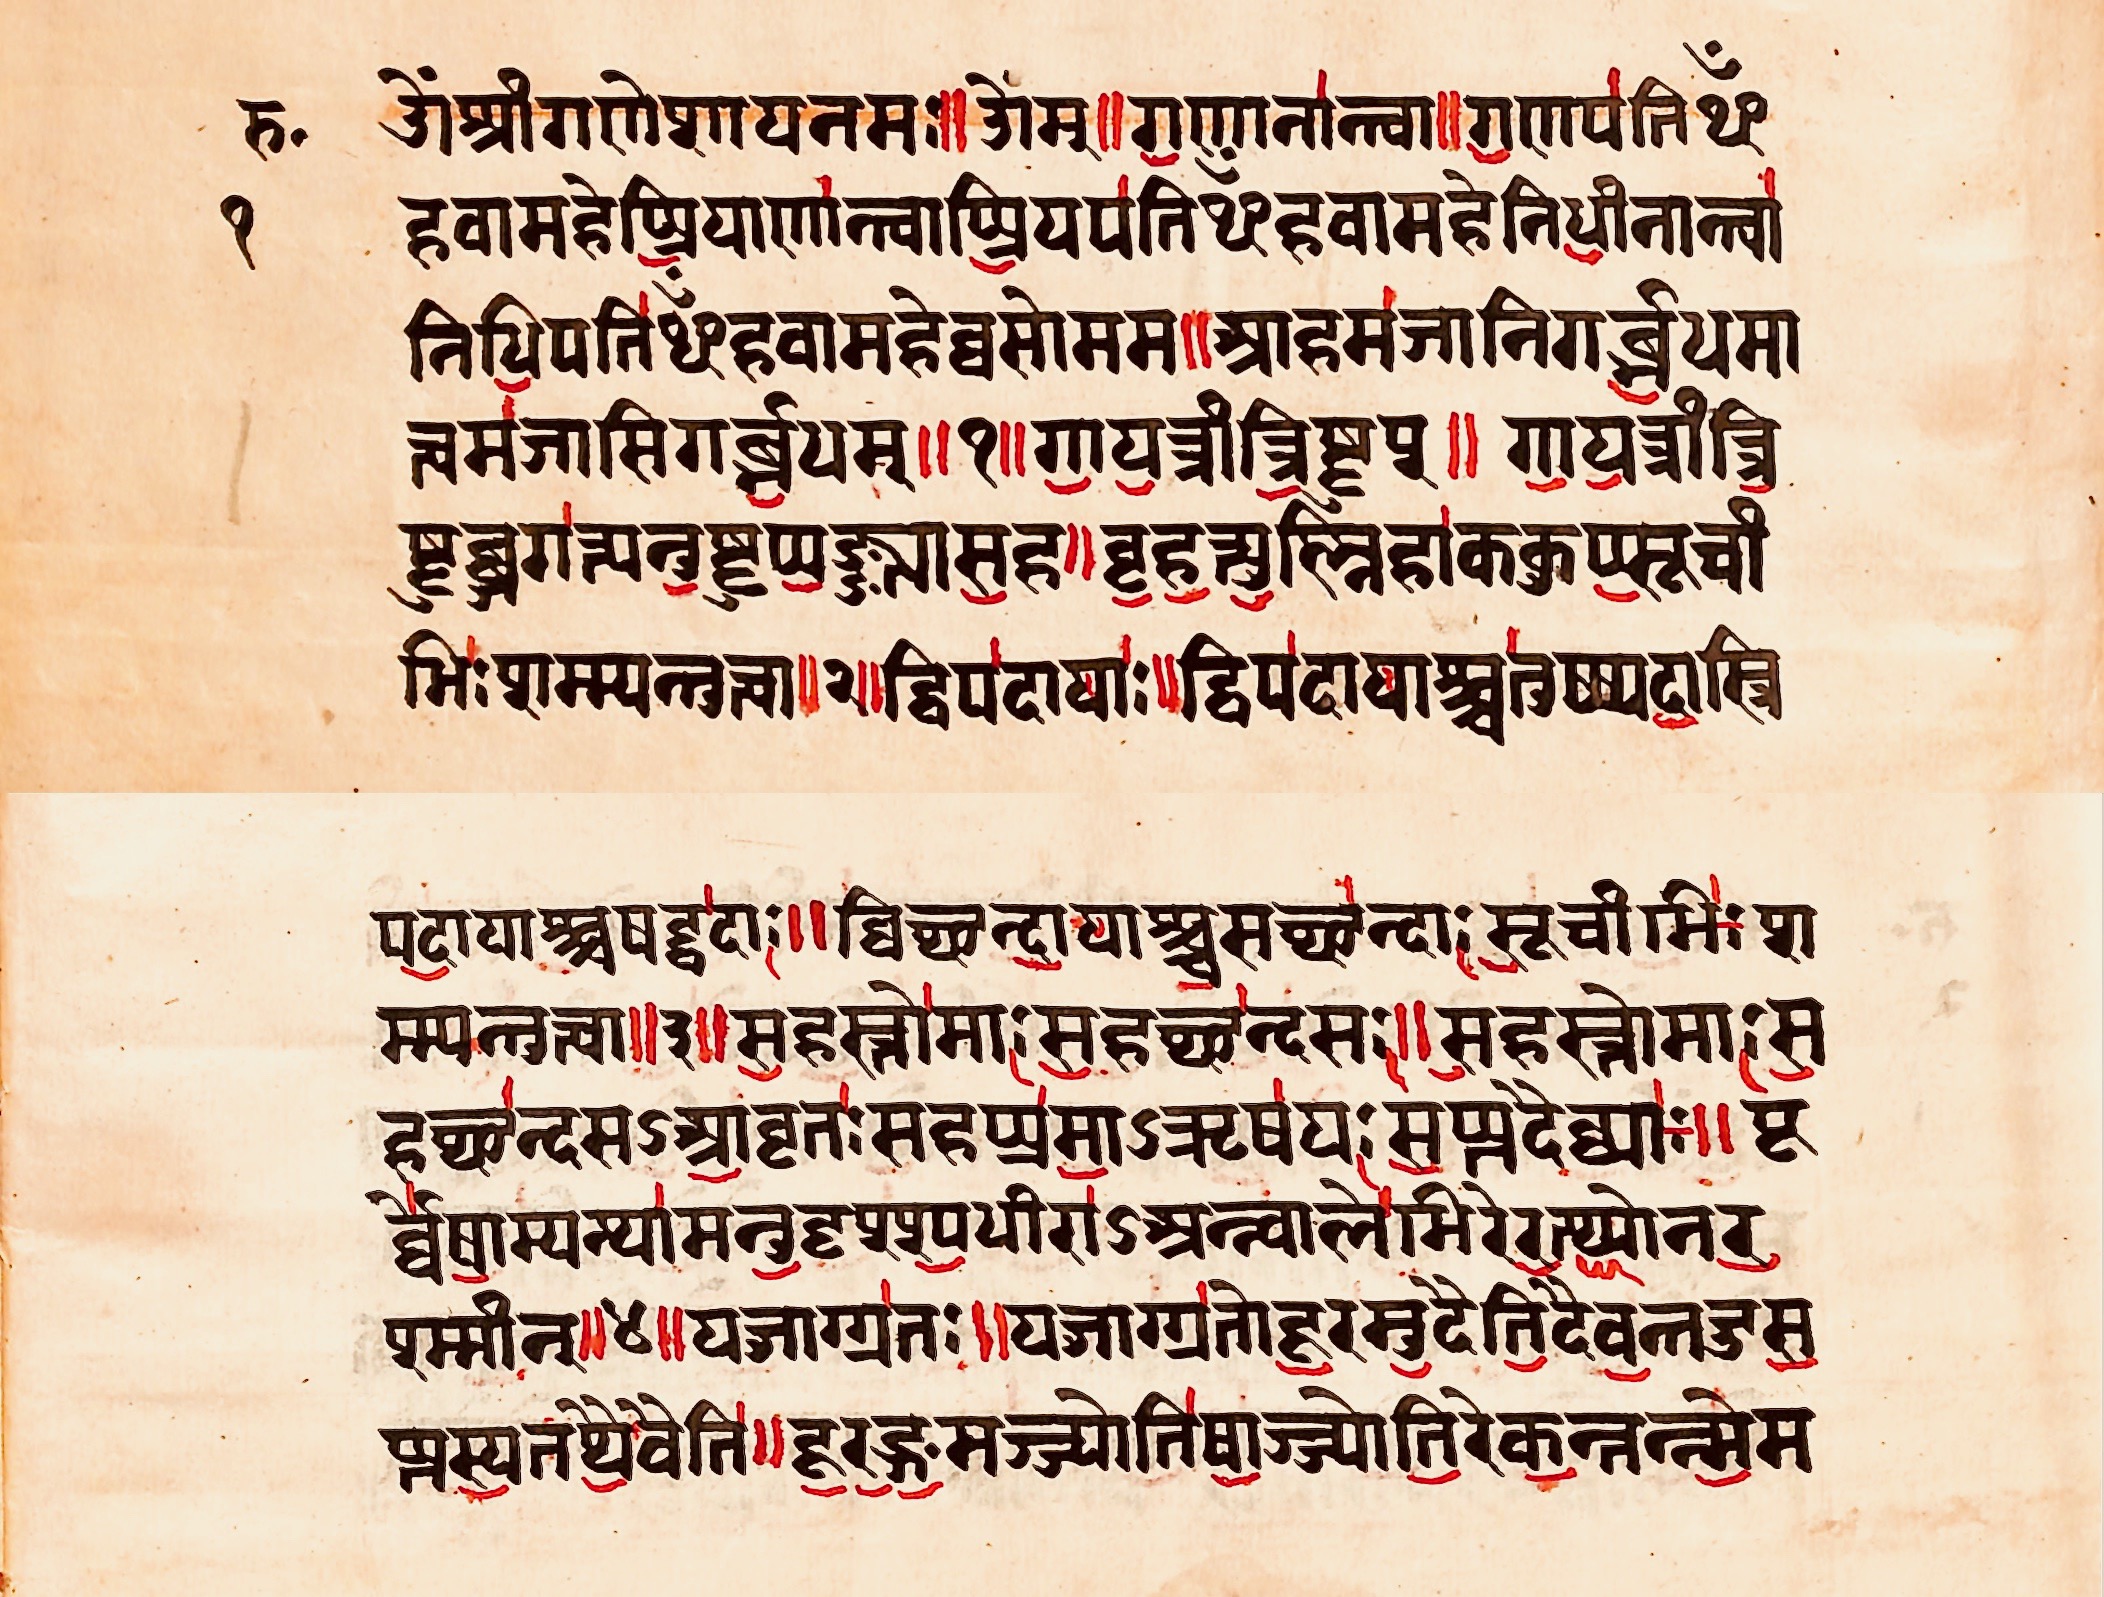 रु. ॐश्रीगणेशायनमः॥ओम्॥ग॒णाना॑न्त्वा॥ग॒णप॑तिᳪ
१ हवामहेप्प्रि॒याणा॑न्त्वाप्प्रि॒यप॑तिᳪहवामहेनिधी॒नान्त्वा॑
निधि॒पति॑ᳪहवामहेव्वसोमम॥आहम॑जानिगर्ब्भ॒धमा
त्वम॑जासिगर्ब्भ॒धम्॥१॥गा॒य॒त्त्रीत्त्रि॒ष्टुप्॥गा॒य॒त्त्रीत्त्रि॒
ष्टुब्ज्जग॑त्यनु॒ष्टुप्प॒ङ्क्त्यास॒ह॥बृ॒ह॒त्यु॒ष्ष्णिहा॑ककुप्प्सू॒ची
भिः॑शम्म्यन्तुत्वा॥२॥द्विप॑दायाः॑॥द्विप॑दायाश्च्चतु॑ष्प्पदा॒स्त्रि
पदा॒याश्च्चषट्प॑दाः॥व्विच्छन्दा॒याश्च्च॒सच्छ॑न्दाःसू॒चीभिः॑श
म्म्यन्तुत्वा॥३॥स॒हस्तो॑माःस॒हच्छ॑न्दसः॥स॒हस्तोमाःस॒
हच्छ॑न्दसऽआ॒वृतः॑सहप्प्र॑मा॒ऽऋष॑यःस॒प्प्तदैव्व्याः॑॥पू
र्व्वे॑षा॒म्पन्था॑मनु॒दृश्श्प॒धीरा॑ऽअन्न्वालेभि॑रेर॒त्थ्यो॒नर॒
श्म्मीन्॥४॥यज्जाग्ग्र॑तः॥यज्जाग्ग्र॑तोदू॒रमु॒दैति॒दैव॒न्तदु॑स॒
प्प्तस्य॒तथै॒वैति॑॥दू॒र॒ङ्ग॒मज्ज्योति॑षा॒ज्ज्योति॒रेक॒न्तन्न्मे॒म